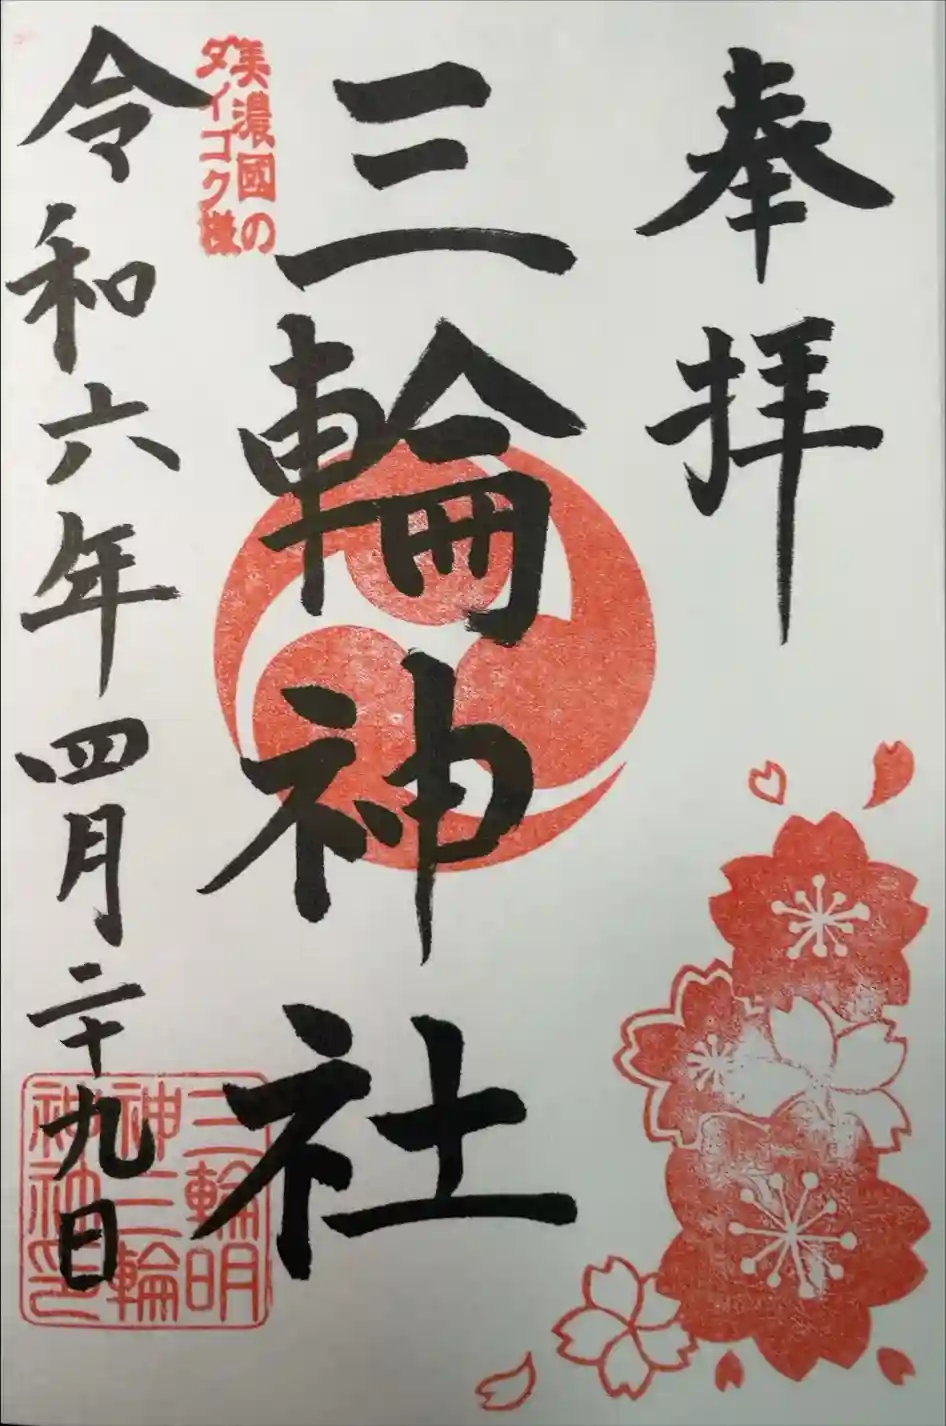 奉拝
三輪神社
美濃國の
ダイコク様
令和六年四月二十九日
三輪明
神三輪
神社印